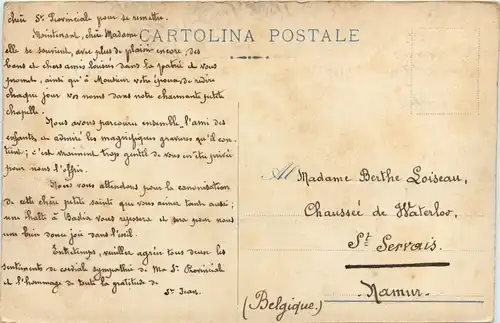 chère Sr. Provincial pour se remettre.
Maintenant, chère Madame,
elle se souvient, avec plus de plaisir encore, des
bons et chers amis laissés dans la patrie et vous
promet, ainsi qu'à Monsieur votre époux, de redire
chaque jour vos noms dans notre charmante petite
chapelle.
Nous avons parcouru ensemble l'ami des
enfants et admiré les magnifiques gravures qu'il con-
tient; c'est vraiment trop gentil de vous en être privée
pour nous l'offrir.
Nous vous attendons pour la canonisation
de cette chère petite sainte que vous aimez tant aussi;
une halte à Badia vous reposera et sera pour nous
une bien douce joie dans l'exil.
Entretemps, veuillez agréer tous deux les
sentiments de cordiale sympathie de Ma Sr. Provinciale
et l'hommage de toute la gratitude de
Sr. Jean.
CARTOLINA POSTALE
A Madame Berthe Loiseau,
Chaussée de Waterloo,
St Servais.
Namur.
(Belgique.)